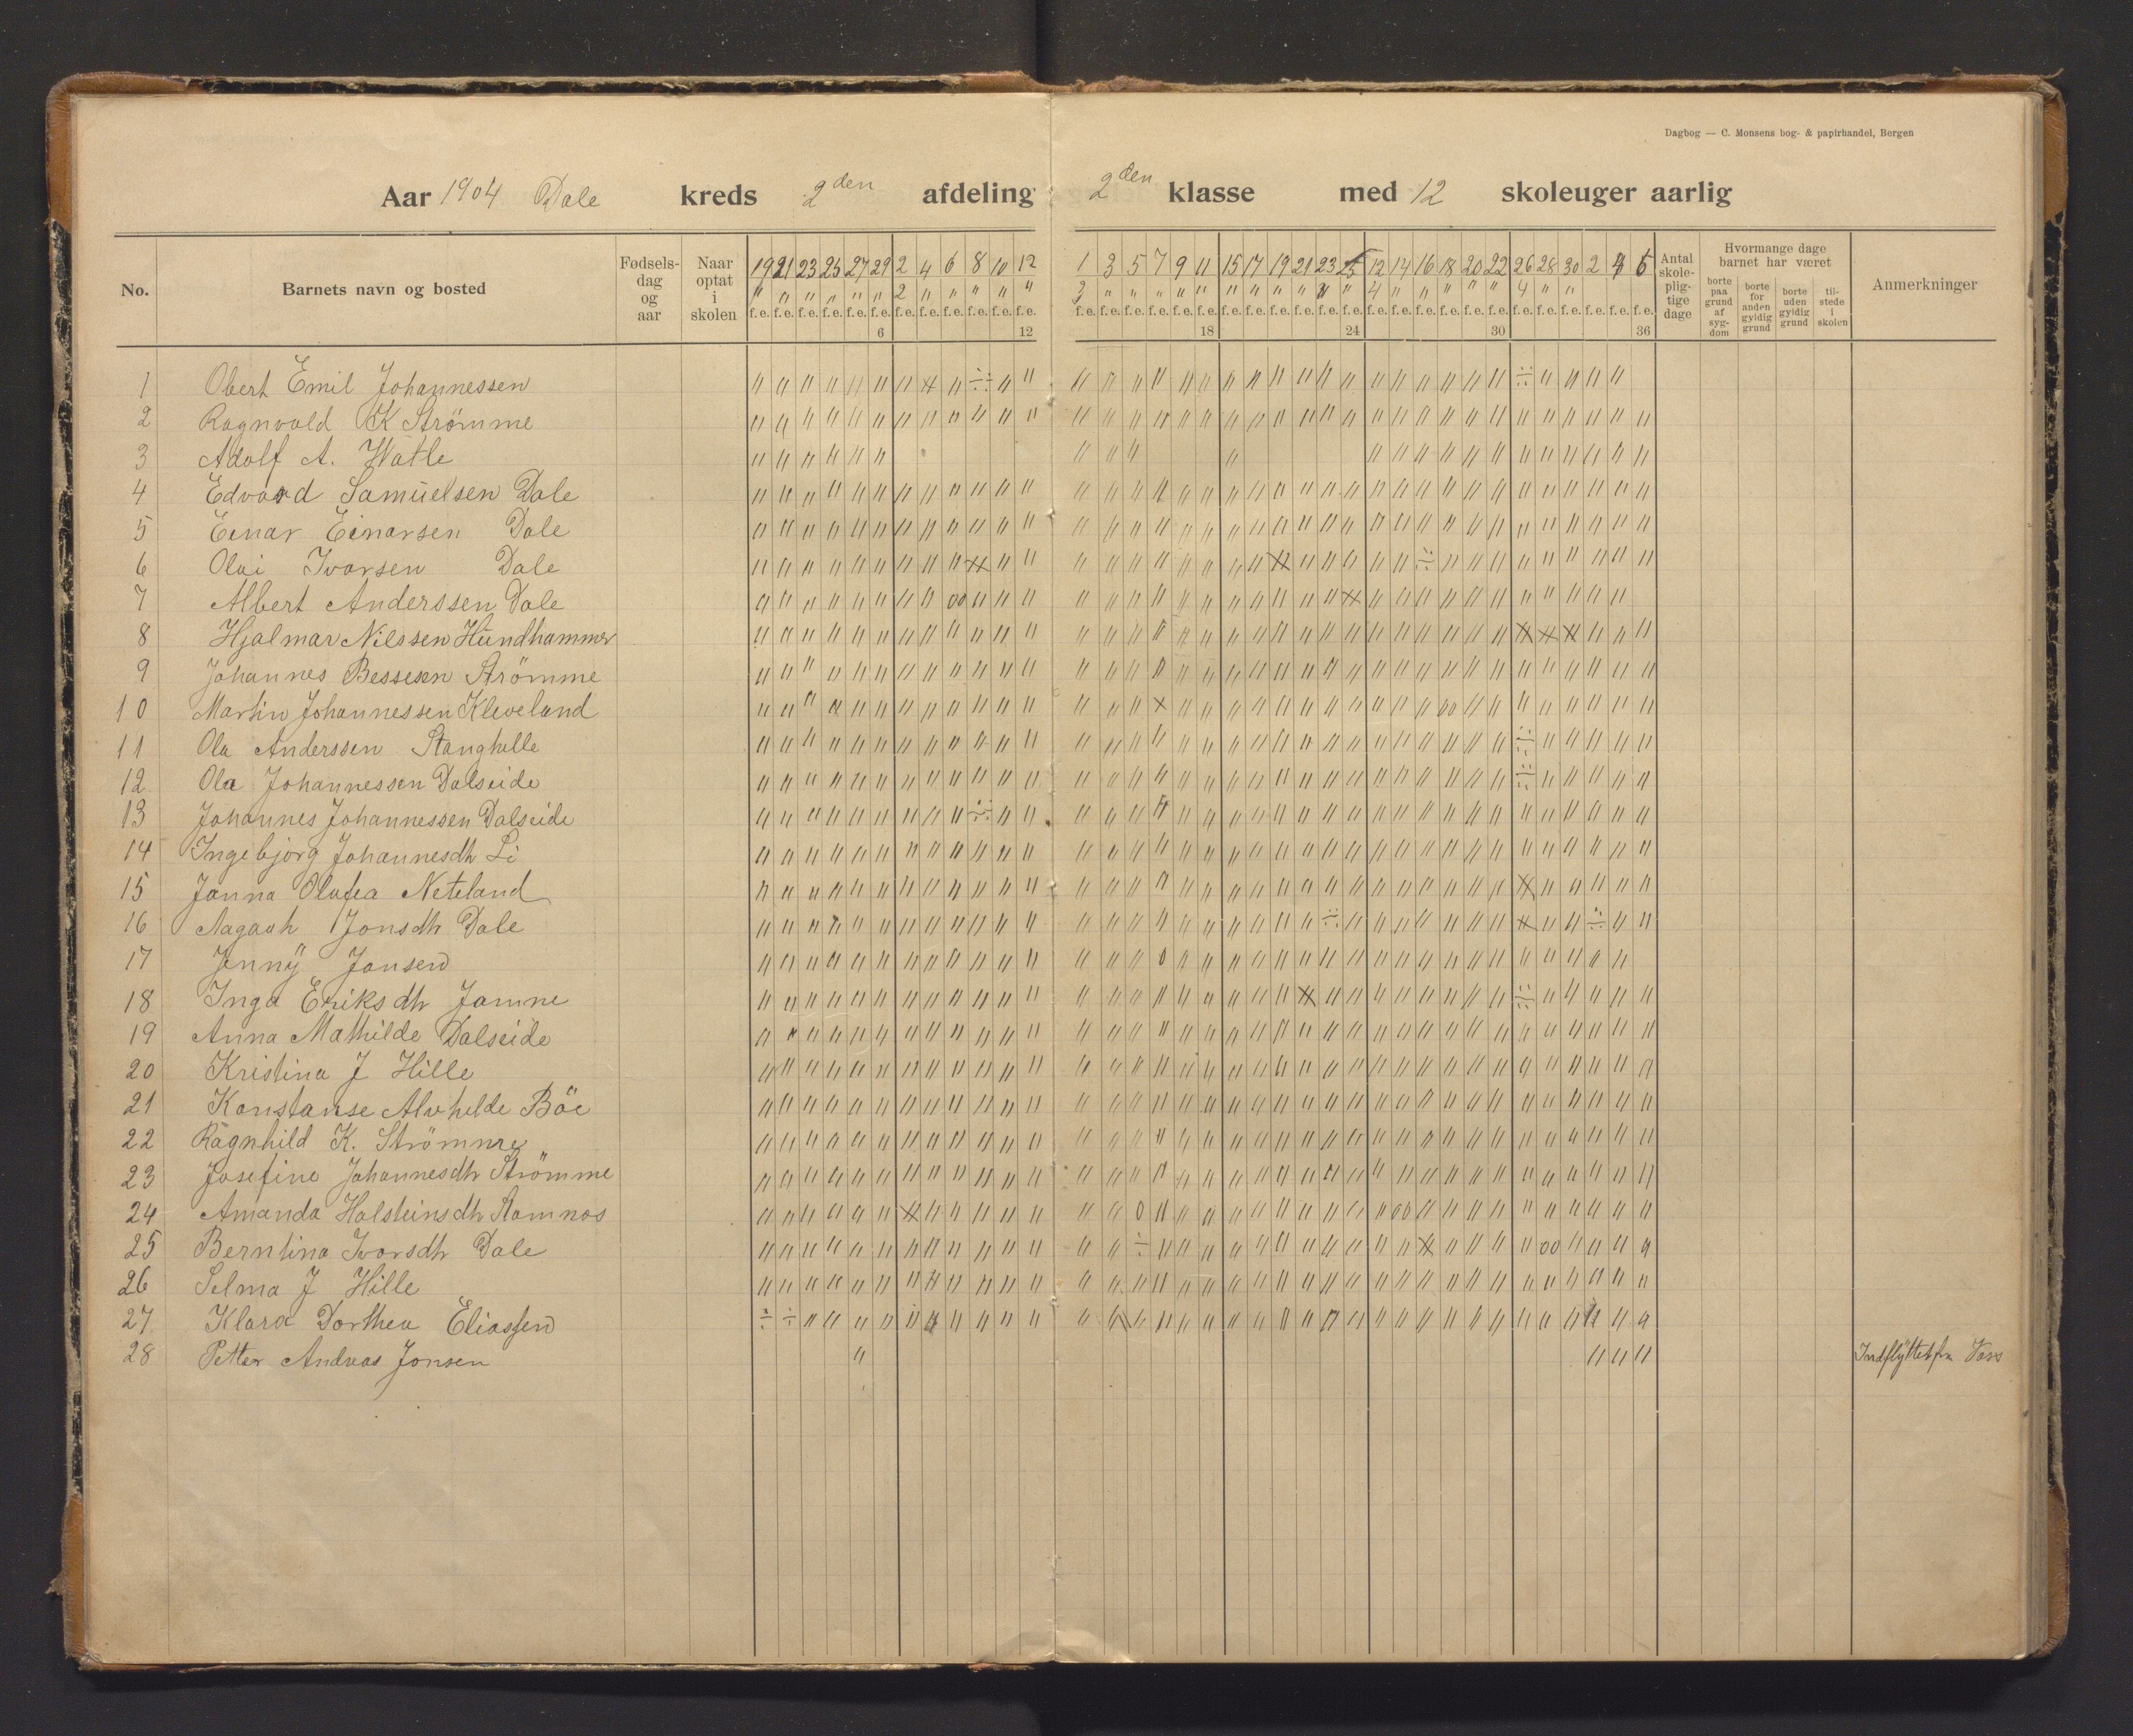 Dagbog — C. Monsens bog- & papirhandel, Bergen
Aar 1904 Dale kreds 2den afdeling 2den klasse med 12 skoleuger aarlig
No. Barnets navn og bosted Fødsels-dag og aar Naar optat i skolen Antal skole-plig-tige dage Hvormange dage barnet har været Anmerkninger
borte paa grund af syg-dom borte for anden gyldig grund borte uden gyldig grund til-stede i skolen
19 21 23 25 27 29 2 4 6 8 10 12 1 3 5 7 9 11 15 17 19 21 23 25 12 14 16 18 20 22 26 28 30 2 4 5
" " " " " " 2 " " " " " 3 " " " " " " " " " " " 4 " " " " " 4 " "
f.e. f.e. f.e. f.e. f.e. f.e. f.e. f.e. f.e. f.e. f.e. f.e. f.e. f.e. f.e. f.e. f.e. f.e. f.e. f.e. f.e. f.e. f.e. f.e. f.e. f.e. f.e. f.e. f.e. f.e. f.e. f.e. f.e. f.e. f.e. f.e.
6 12 18 24 30 36
1 Obert Emil Johannessen
2 Ragnvald K Strömme
3 Adolf A. Watle
4 Edvard Samuelsen Dale
5 Einar Einarsen Dale
6 Olai Ivarsen Dale
7 Albert Anderssen Dale
8 Hjalmar Nilssen Hundhammer
9 Johannes Bessesen Strömme
10 Martin Johannessen Kleveland
11 Ola Anderssen Stanghelle
12 Ola Johannessen Dalseide
13 Johannes Johannessen Dalseide
14 Ingebjörg Johannesdtr Li
15 Janna Olafea Neteland
16 Aagath Jonsdtr Dale
17 Jenny Jansen
18 Inga Eriksdtr Jamne
19 Anna Mathilde Dalseide
20 Kristina J Hille
21 Konstanse Alvhilde Böe
22 Ragnhild K. Strömme
23 Josefine Johannesdtr Strömme
24 Amanda Halsteinsdtr Stamnos
25 Berntina Ivarsdtr Dale
26 Selma J Hille
27 Klara Dorthea Eliassen
28 Petter Andreas Jonsen Indflyttet fra Voss